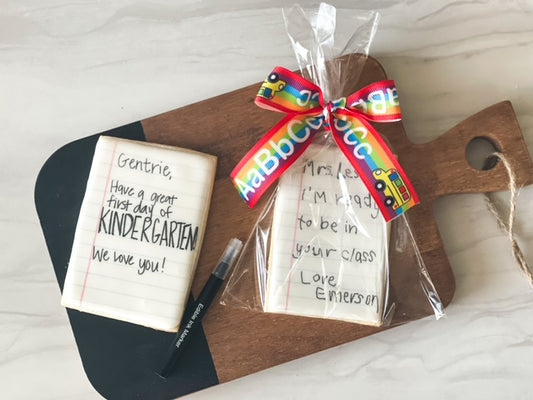 Gentrie,
Have a great
first day of
KINDERGARTEN
We love you!
Edible Ink Marker
AaBbCc
Mrs.
i'm ready
to be in
your class
Love
Emerson